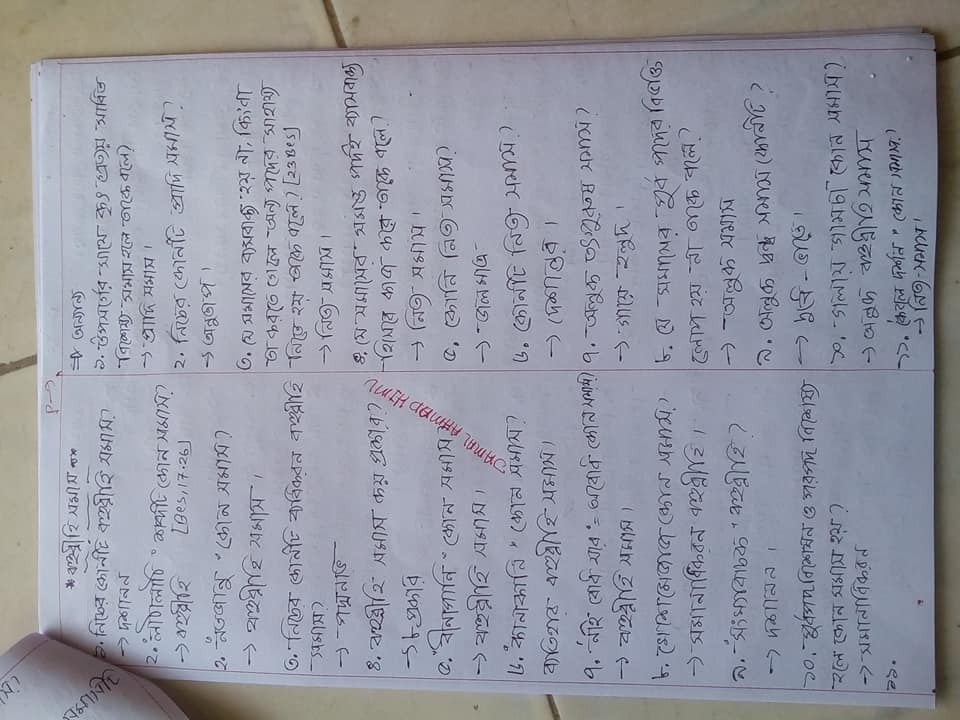 P→
* বহুব্রীহি সমাস **
১. নিচের কোনটি বহুব্রীহি সমাস?
→ দশানন
২. "লাঠালাঠি" শব্দটি কোন সমাস?
→ বহুব্রীহি [Bcs, 17.26]
২. "নতজানু" কোন সমাস?
→ বহুব্রীহি সমাস।
৩. নিচের কোনটি ব্যধিকরন বহুব্রীহি
সমাস?
→ পদ্মনাভ
৪. বহুব্রীহি সমাস কয় প্রকার?
→ ৮ প্রকার
৫. "বীনাপানি" কোন সমাস?
→ বহুব্রীহি সমাস।
৬. "কানাকানি" কোন সমাস?
ব্যতিহার বহুব্রীহি সমাস।
৭. "নাই বোধ যার" = অবোধ কোন সমাস?
→ বহুব্রীহি সমাস।
৮. মোশমেজাজ কোন সমাস?
→ সমানাধিকরন বহুব্রীহি।
৯. "সংখ্যাবাচক" বহুব্রীহি?
→ দশানন।
১০. পূর্বপদ বিশেষন ও পরপদ বিশেষ্য
হলে কোন সমাস হয়?
→ সমানাধিকরন
১১.
⇒ অন্যান্য
১. উপসর্গের সাথে কৃৎ প্রত্যয় সাধিত
বিশেষ্য সমাস হলে তাকে বলে?
→ প্রাদি সমাস।
২. নিচের কোনটি প্রাদি সমাস?
→ অনুতাপ।
৩. যে সমাসের ব্যসবাক্য হয় না, কিংবা
তা করতে গেলে অন্য পদের সাহায্য
নিতে হয় তাকে বলে? [23 Bcs]
→ নিত্য সমাস।
৪. যে সমাসের সমস্ত পদই ব্যাসবাক্য
হিসবে কাজ করে তাকে বলে?
→ নিত্য সমাস।
৫. কোনি নিত্য সমাস?
→ জলমাত্র
৬. কোনটি নিত্য সমাস?
→ দেশান্তর।
৭. অলুক তৎপুরুষ সমাস?
→ গায়ে হলুদ।
৮. যে সমাসের পূর্ব পদের বিভক্তি
লোপ হয় না তাকে বলে?
→ অলুক সমাস
৯. অলুক দ্বন্দ্ব সমাস কোনটি?
→ দুধে-ভাতে।
১০. গলায় গামচা কোন সমাস?
→ অলুক বহুব্রীহি সমাস
১১. "কেবল দর্শন" কোন সমাস?
→ নিত্য-সমাস।